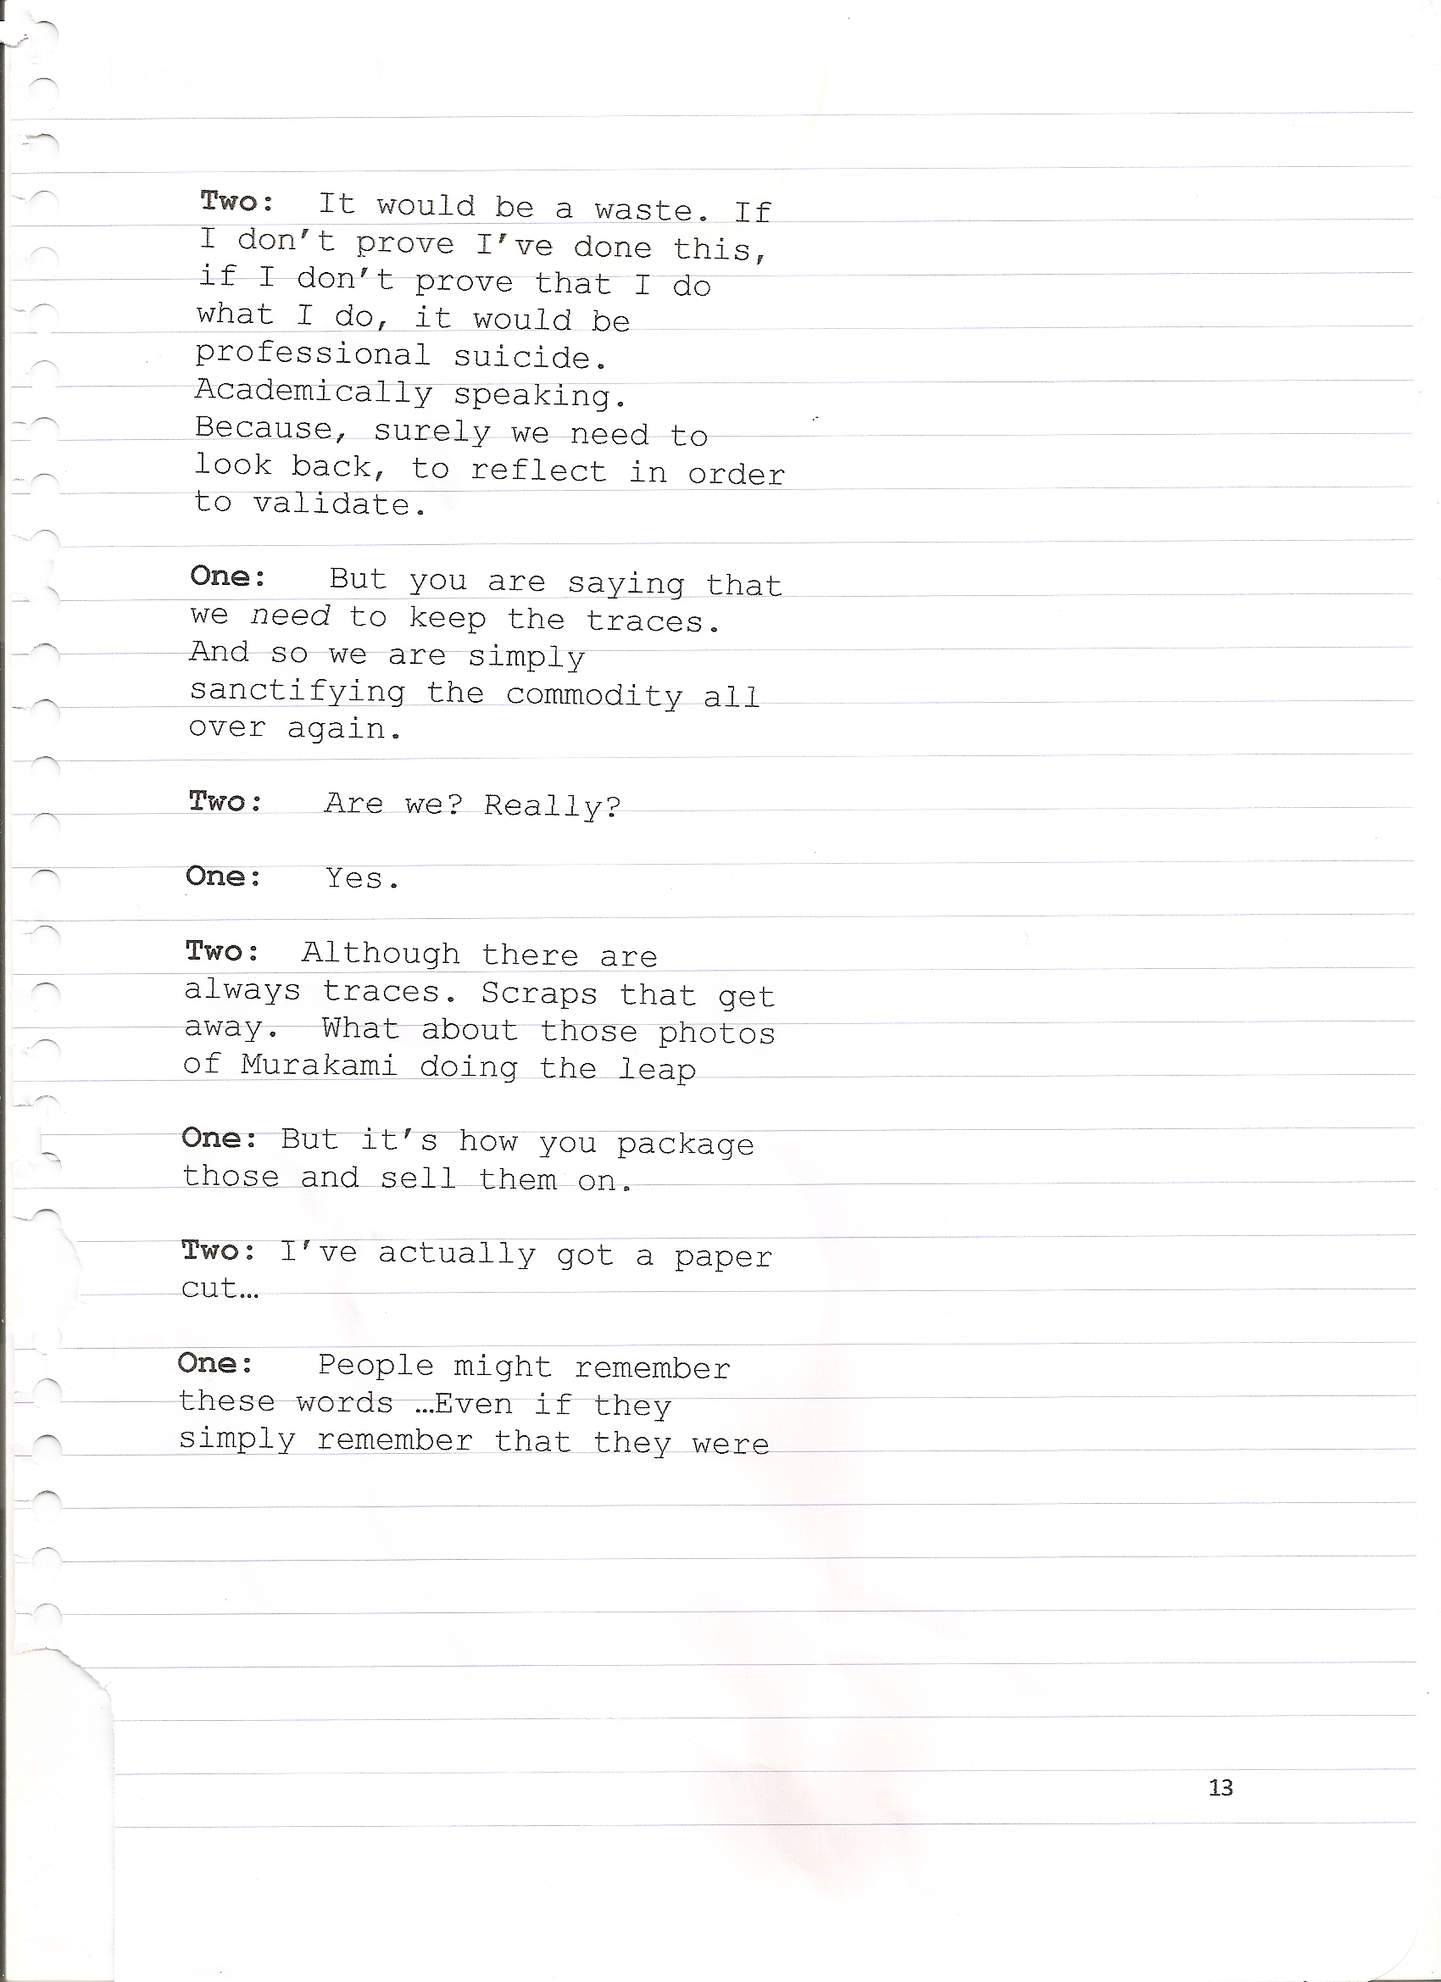 Two: It would be a waste. If
I don't prove I've done this,
if I don't prove that I do
what I do, it would be
professional suicide.
Academically speaking.
Because, surely we need to
look back, to reflect in order
to validate.
One: But you are saying that
we need to keep the traces.
And so we are simply
sanctifying the commodity all
over again.
Two: Are we? Really?
One: Yes.
Two: Although there are
always traces. Scraps that get
away. What about those photos
of Murakami doing the leap
One: But it's how you package
those and sell them on.
Two: I've actually got a paper
cut…
One: People might remember
these words …Even if they
simply remember that they were
13